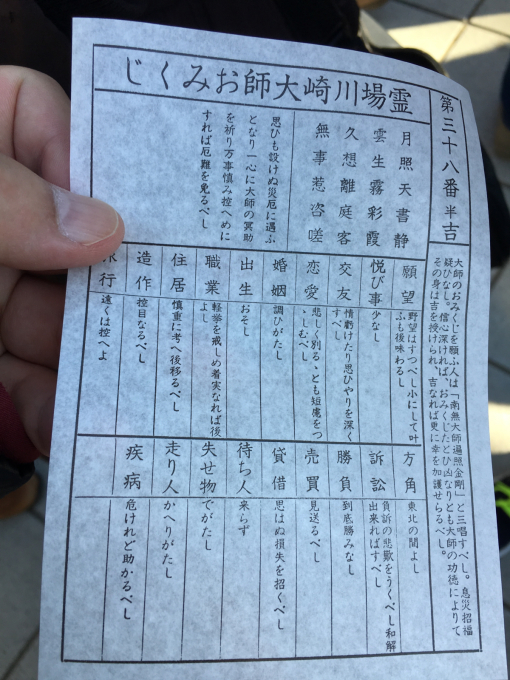 霊場川崎大師おみくじ
第三十八番 半吉
大師のおみくじを願ふ人は「南無大師遍照金剛」と三唱すべし。息災招福
疑ひなし。信心深ければ、おみくじたとひ凶なりとも大師の功徳によりて
その身は吉を授けられ、吉なれば更に幸を加護せらるべし。
月照天書静
雲生霧彩霞
久想離庭客
無事惹咨嗟
思ひも設けぬ災厄に遇ふ
となり一心に大師の冥助
を祈り万事慎み控へめに
すれば厄難を免るべし
願望 野望はすつべし小にして叶
ふも後味わるし
悦び事 少なし
交友 情虧けたり思ひやりを深く
すべし
恋愛 悲しく別るゝとも短慮をつ
ゝしむべし
婚姻 調ひがたし
出生 おそし
職業 軽挙を戒しめ着実なれば後
よし
住居 慎重に考へ後移るべし
造作 控目なるべし
旅行 遠くは控へよ
方角 東北の間よし
訴訟 負訴の悲歎をうくべし和解
出来ればすべし
勝負 到底勝みなし
売買 見送るべし
貸借 思はぬ損失を招くべし
待ち人 来らず
失せ物 でがたし
走り人 かへりがたし
疾病 危けれど助かるべし